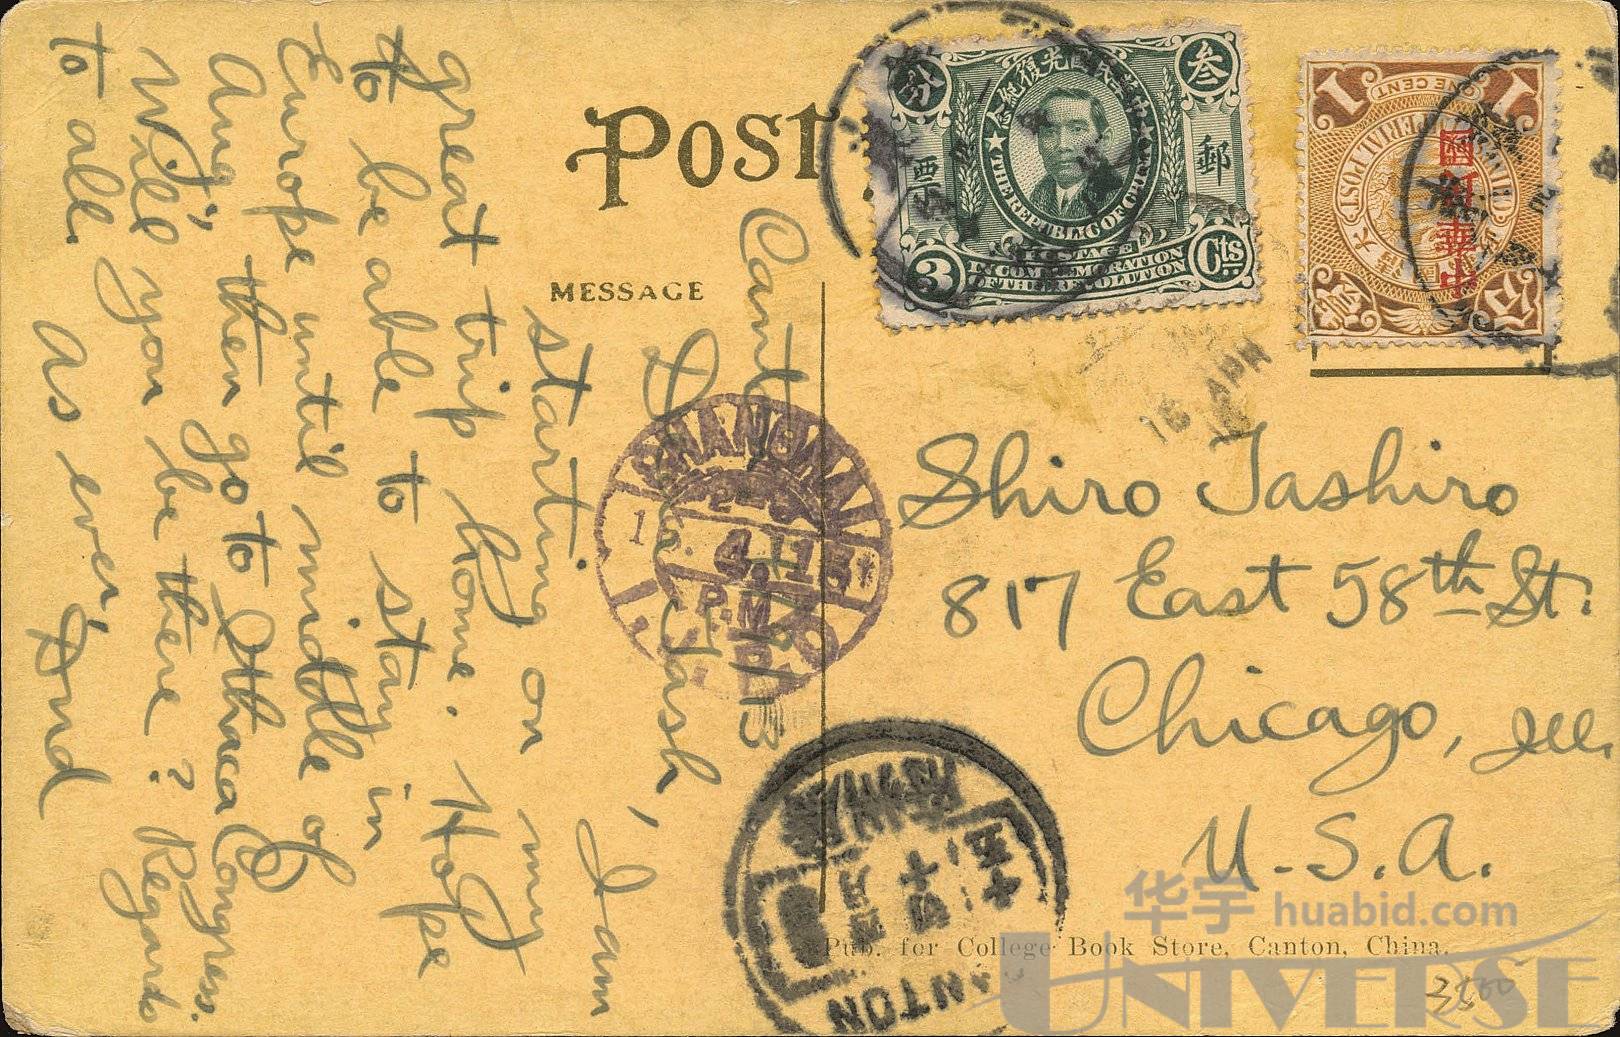 POST
MESSAGE
Canton 4/7/13
Dr. Tash,
I am
starting on my
great trip home. Hope
to be able to stay in
Europe until middle of
Aug, then go to Ithaca Congress.
Will you be there? Regards
to all.
As ever,
Shiro Tashiro
817 East 58th St.
Chicago, Ill.
U.S.A.
Pub. for College Book Store, Canton, China.
中華民國光復紀念
叁
分
郵
票
THE REPUBLIC OF CHINA
POSTAGE
IN COMMEMORATION
OF THE REVOLUTION
3 Cts
1 1
ONE CENT
IMPERIAL POST
大清
中華民國
SHANGHAI
15.4.13
P.M.
I.J.P.O
16 APR
CANTON
华宇 huabid.com
UNIVERSE
3500